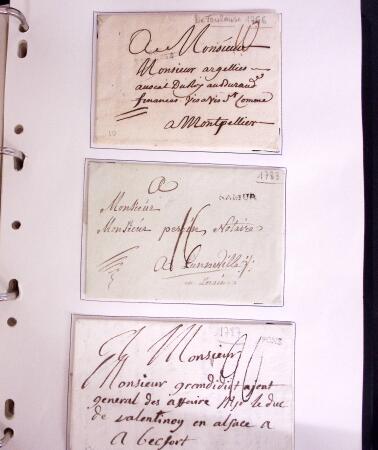 De Toulouse 1766
A Monsieur
Monsieur argellies
avocat Du Roy au Bureau des
finances vis a vis St Comme
a Montpellier
10
1783
NAMUR
A
Monsieur
Monsieur Notaire
16
A Lunneville
en Loraine
1787
A Monsieur
Monsieur grandidier ajent
general des affaire Mgr le duc
de valentinoy en alsace a
A becfort